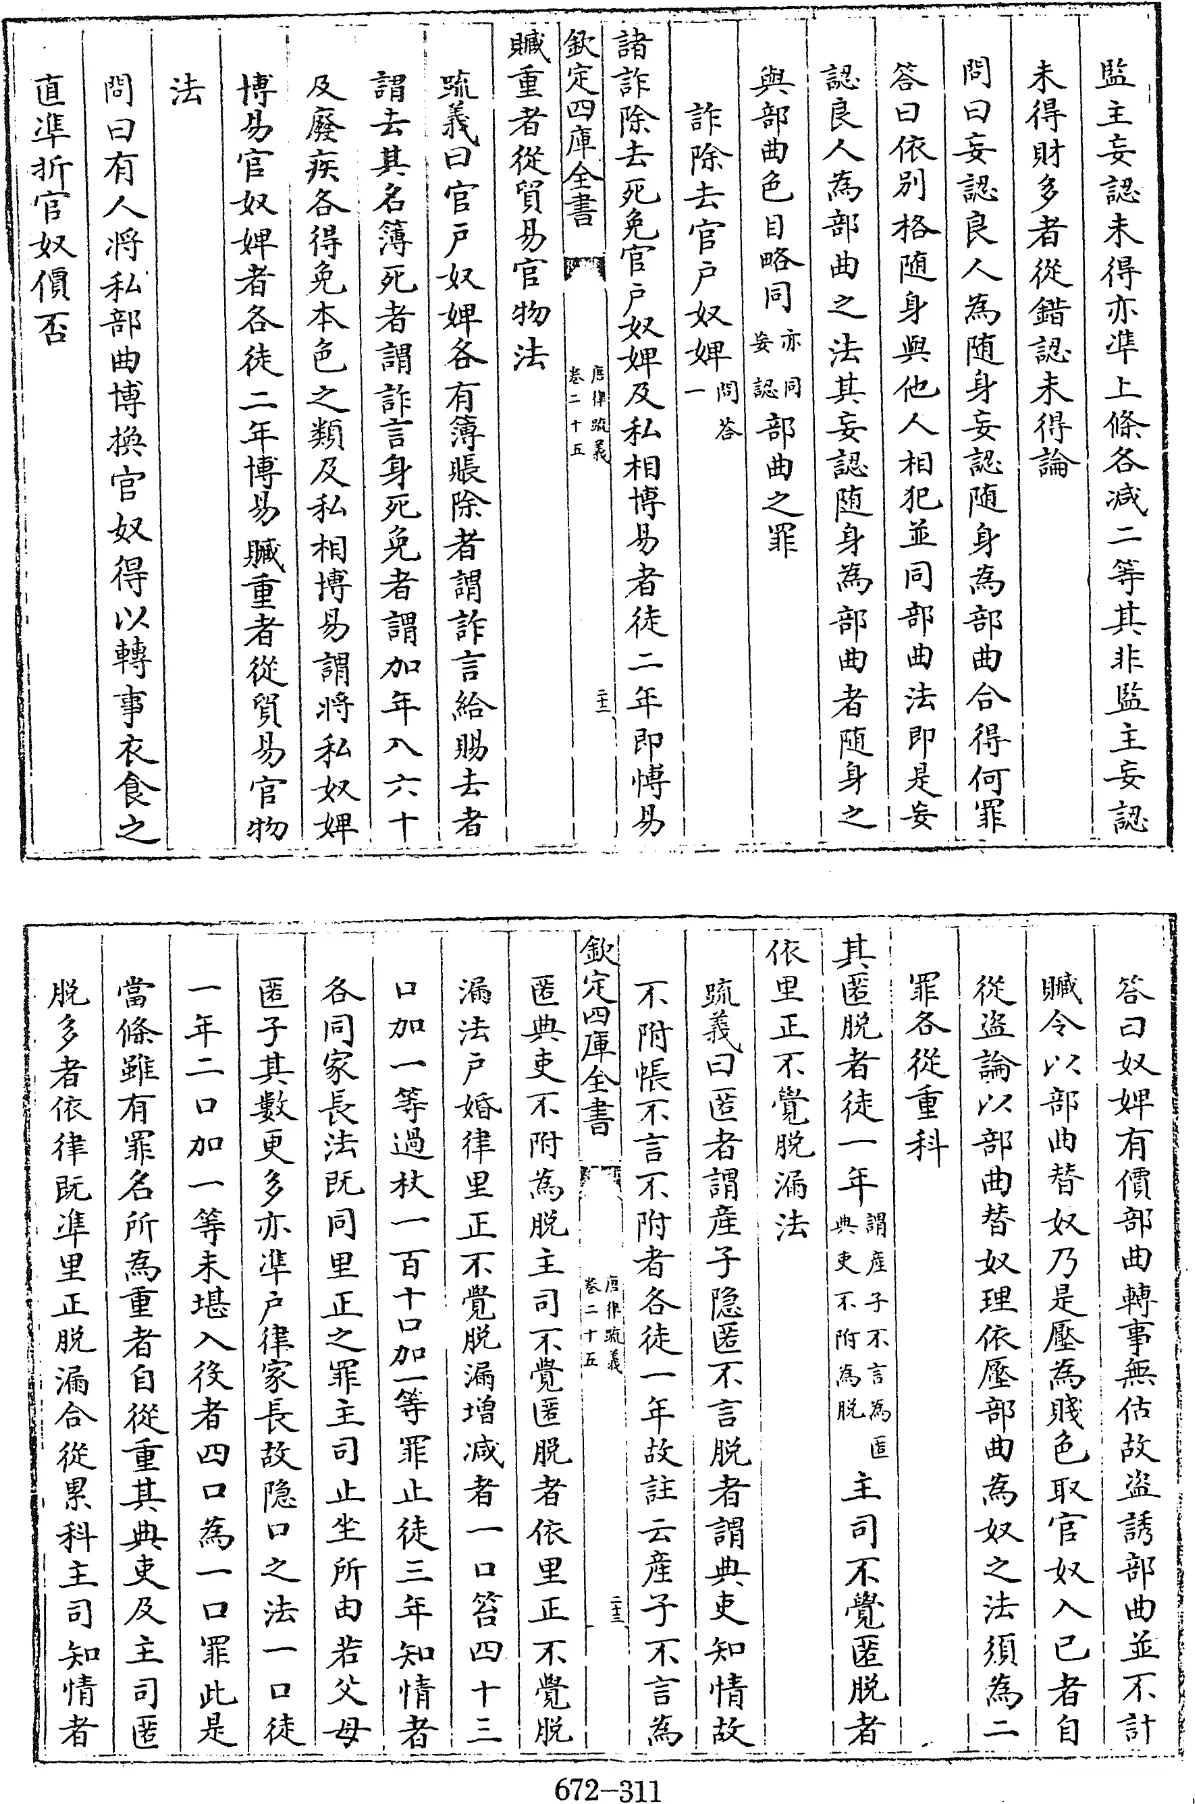 監主妄認未得亦準上條各减二等其非監主妄認
未得財多者從錯認未得論
問曰妄認良人為随身妄認随身為部曲合得何罪
答曰依别格随身與他人相犯並同部曲法即是妄
認良人為部曲之法其妄認随身為部曲者随身之
與部曲色目略同亦同妄認部曲之罪
詐除去官户奴婢一問答
諸詐除去死免官户奴婢及私相博易者徒二年即博易
欽定四庫全書
唐律疏義
卷二十五
二十二
贓重者從貿易官物法
疏義曰官户奴婢各有簿賬除者謂詐言給賜去者
謂去其名簿死者謂詐言身死免者謂加年入六十
及廢疾各得免本色之類及私相博易謂將私奴婢
博易官奴婢者各徒二年博易贓重者從貿易官物
法
問曰有人將私部曲博换官奴得以轉事衣食之
直準折官奴價否
答曰奴婢有價部曲轉事無估故盜誘部曲並不計
贓今以部曲替奴乃是壓為賤色取官奴入已者自
從盜論以部曲替奴理依壓部曲為奴之法須為二
罪各從重科
其匿脱者徒一年謂産子不言為匿典吏不附為脱主司不覺匿脱者
依里正不覺脱漏法
疏義曰匿者謂産子隐匿不言脱者謂典吏知情故
不附帳不言不附者各徒一年故註云産子不言為
欽定四庫全書
唐律疏義
卷二十五
二十三
匿典吏不附為脱主司不覺匿脱者依里正不覺脱
漏法户婚律里正不覺脱漏增减者一口笞四十三
口加一等過杖一百十口加一等罪止徒三年知情者
各同家長法既同里正之罪主司止坐所由若父母
匿子其數更多亦準户律家長故隐口之法一口徒
一年二口加一等未堪入役者四口為一口罪此是
當條雖有罪名所為重者自從重其典吏及主司匿
脱多者依律既準里正脱漏合從累科主司知情者
672-311